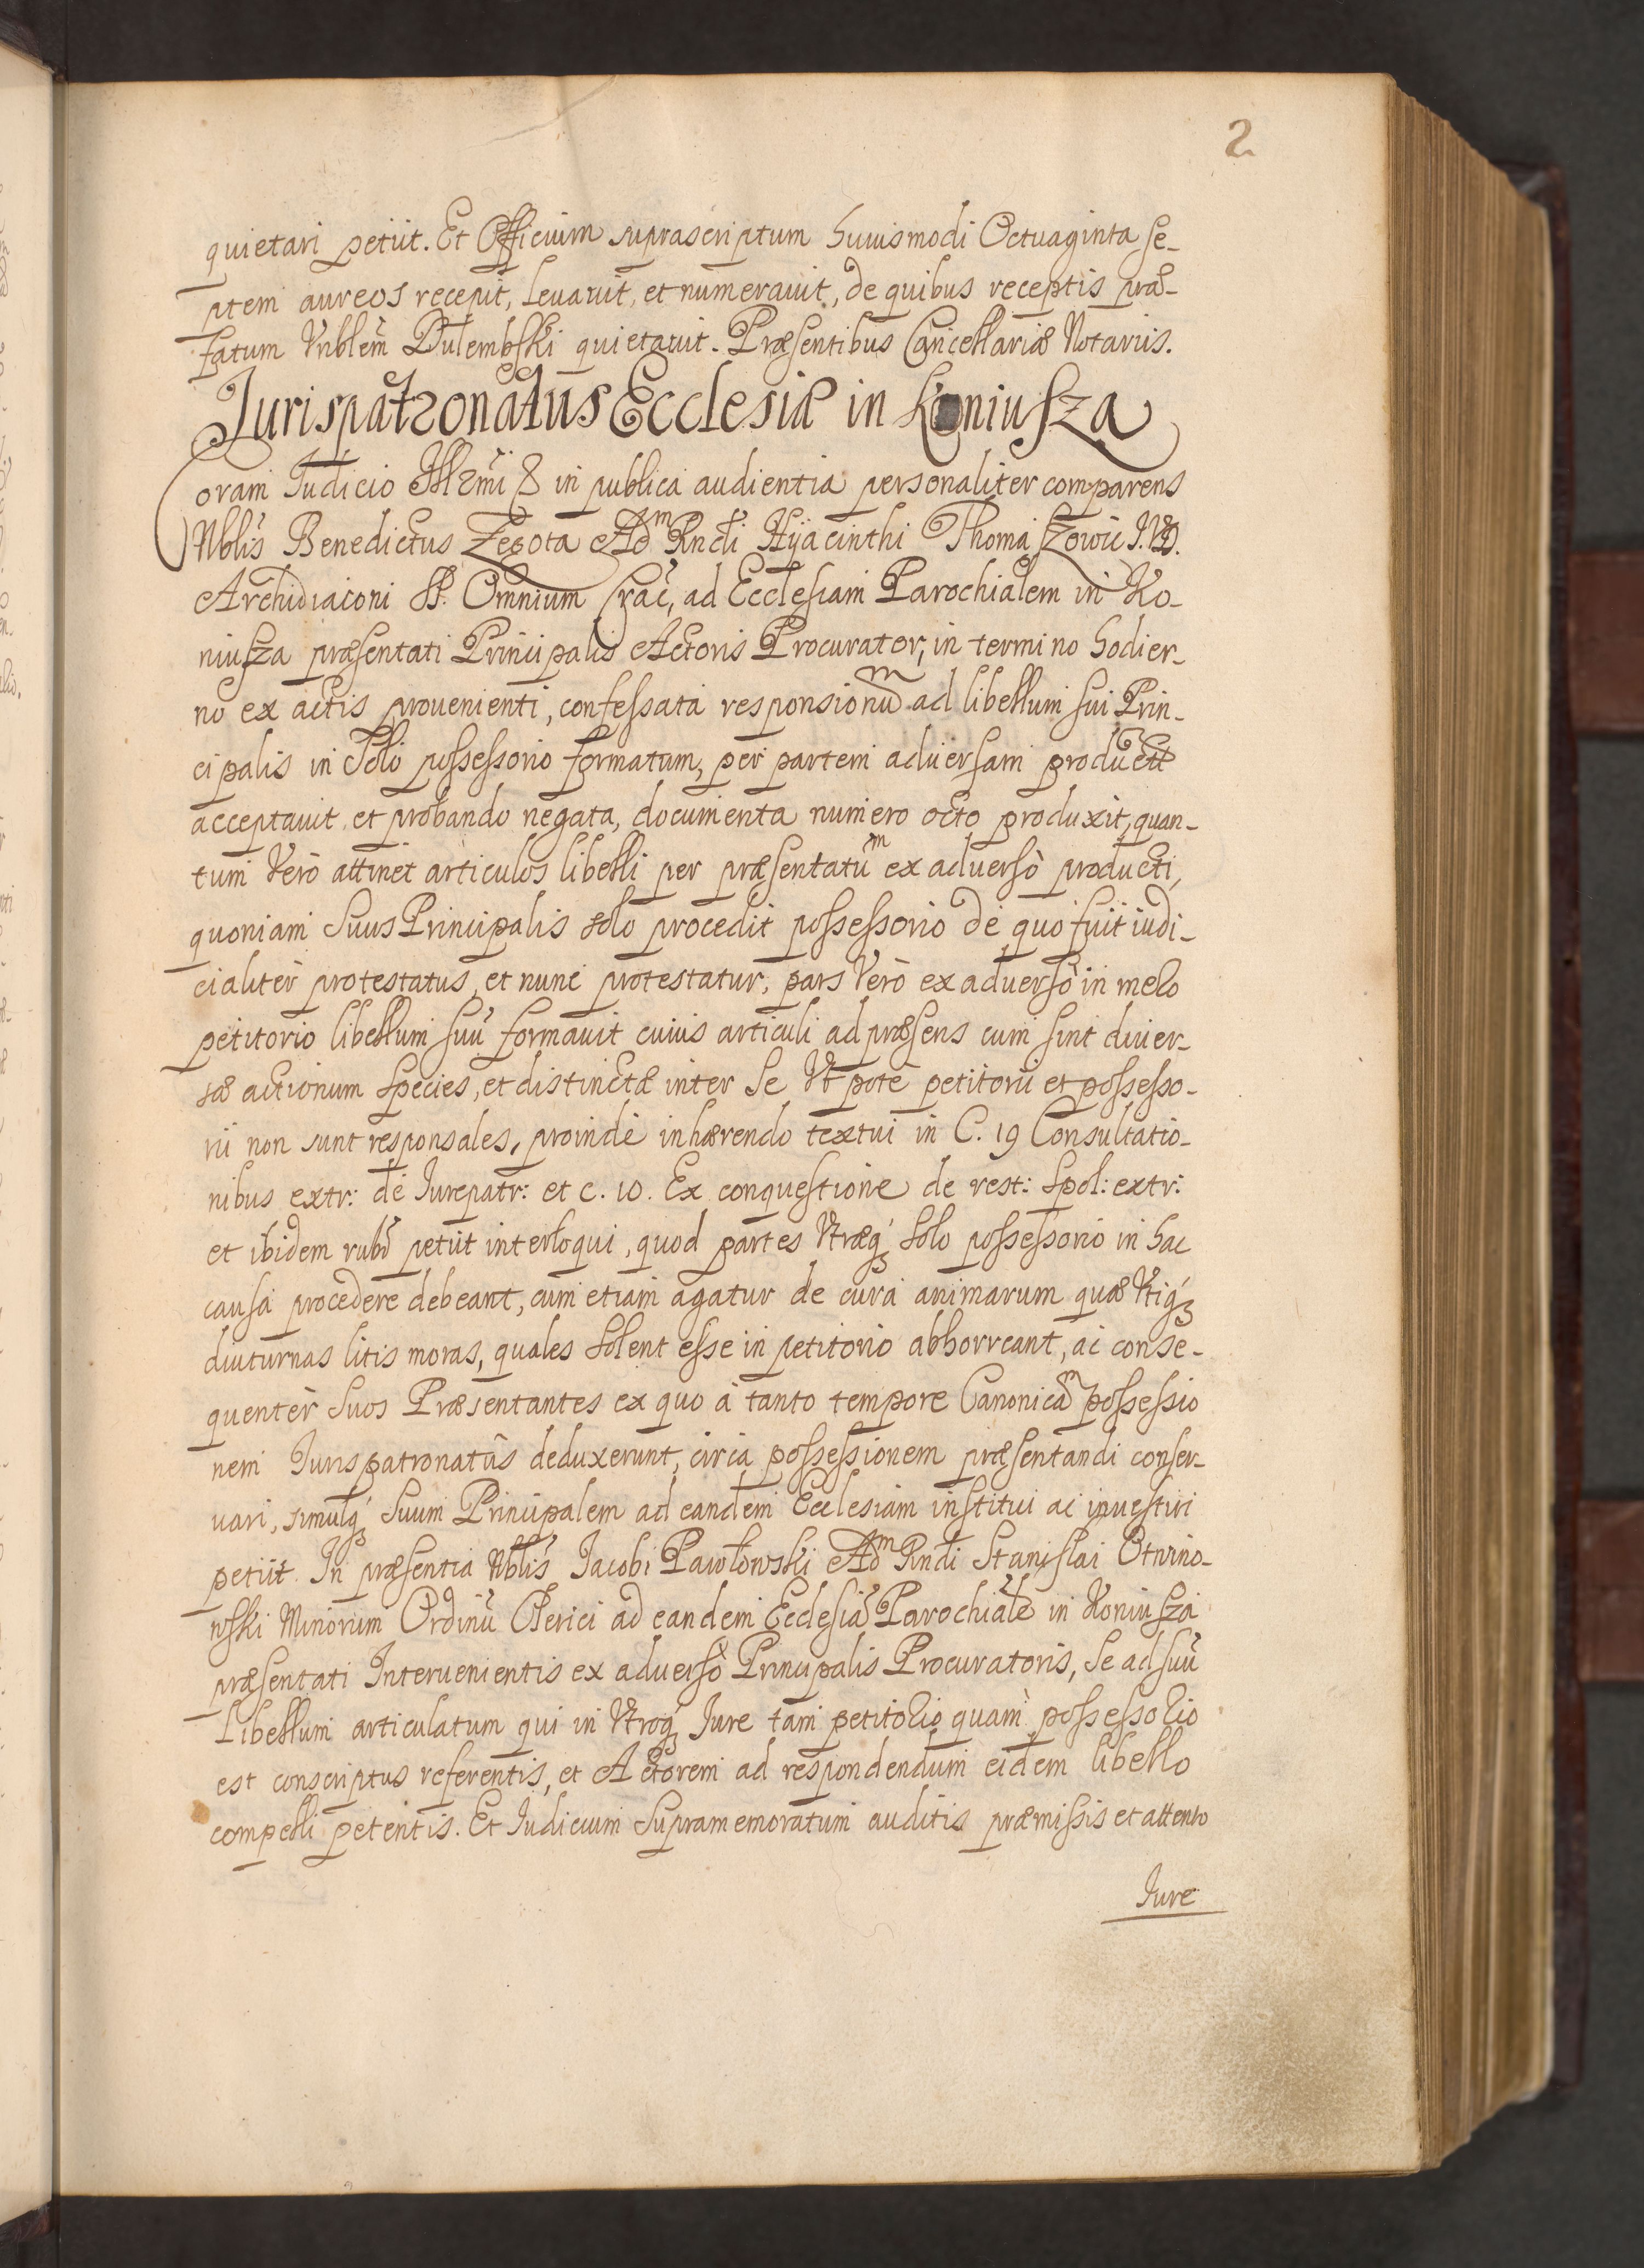 2
quietari petiit. Et Officium suprascriptum huiusmodi Octuaginta se-
ptem aureos recepit, levavit, et numeravit, de quibus receptis præ-
fatum Vnblem Dulembski quietavit. Præsentibus Cancellariæ Notariis.
Jurispatronatus Ecclesiæ in Koniusza
Coram Judicio Illrmi & in publica audientia personaliter comparens
Nblis Benedictus Zegota Adm Rndi Hyacinthi Thomaszowic J.V.D.
Archidiaconi SS. Omnium Crac, ad Ecclesiam Parochialem in Ko-
niusza præsentati Principalis Actoris Procurator, in termino hodier-
no ex actis provenienti, confessata responsionum ad libellum sui Prin-
cipalis in Solo possessorio formatum, per partem adversam product
acceptavit et probando negata, documenta numero octo produxit, quan-
tum Verò attinet articulos libelli per præsentatum ex adversò producti,
quoniam Suus Principalis solo procedit possessorio de quo fuit iudi-
cialitèr protestatus, et nunc protestatur, pars Verò ex adversò in mero
petitorio libellum suū formavit cuius articuli ad præsens cum sint diver-
sæ actionum Species, et distinctæ inter Se Vt potè petitorii et possesso-
rii non sunt responsales, proinde inhærendo textui in C. 19 Consultatio-
nibus extr: de Jurepatr: et c. 10. Ex conquestione de rest: Spol: extr:
et ibidem rubr petiit interloqui, quod partes Vtræq3 Solo possessorio in hac
causa procedere debeant, cum etiam agatur de cura animarum quæ Vtiq3
diuturnas litis moras, quales Solent esse in petitorio abhorreant, ac conse-
quentèr Suos Præsentantes ex quo à tanto tempore Canonicam possessio
nem Jurispatronatûs deduxerunt, circa possessionem præsentandi conser-
vari, simulq3 Suum Principalem ad eandem Ecclesiam institui ac investiri
petiit. In præsentia Nblis Jacobi Pawłowski Adm Rndi Stanislai Otwino-
wski Minorum Ordinū Clerici ad eandem Ecclesiā Parochialē in Koniusza
præsentati Intervenientis ex adversò Principalis Procuratoris, Se ad suū
Libellum articulatum qui in Vtroq3 Jure tam petitorio quàm possessorio
est conscriptus referentis, et Actorem ad respondendum eidem libello
compelli petentis. Et Judicium Supramemoratum auditis præmissis et attento
Jure